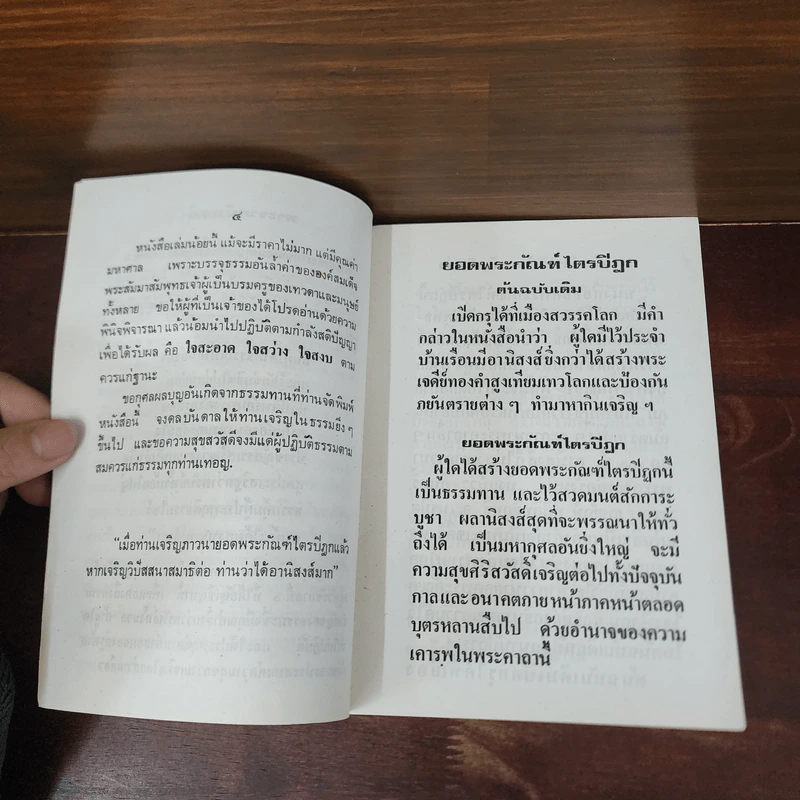 ๔
หนังสือเล่มน้อยนี้ แม้จะมีราคาไม่มาก แต่มีคุณค่า
มหาศาล เพราะบรรจุธรรมอันล้ำค่าขององค์สมเด็จ
พระสัมมาสัมพุทธเจ้าผู้เป็นบรมครูของเทวดาและมนุษย์
ทั้งหลาย ขอให้ผู้ที่เป็นเจ้าของได้โปรดอ่านด้วยความ
พินิจพิจารณา แล้วน้อมนำไปปฏิบัติตามกำลังสติปัญญา
เพื่อได้รับผล คือ ใจสะอาด ใจสว่าง ใจสงบ ตาม
ควรแก่ฐานะ
ขอกุศลผลบุญอันเกิดจากธรรมทานที่ท่านจัดพิมพ์
หนังสือนี้ จงดลบันดาลให้ท่านเจริญในธรรมยิ่งๆ
ขึ้นไป และขอความสุขสวัสดีจงมีแด่ผู้ปฏิบัติธรรมตาม
สมควรแก่ธรรมทุกท่านเทอญ.
“เมื่อท่านเจริญภาวนายอดพระกัณฑ์ไตรปีฎกแล้ว
หากเจริญวิปัสสนาสมาธิต่อ ท่านว่าได้อานิสงส์มาก”
ยอดพระกัณฑ์ไตรปีฎก
ต้นฉบับเดิม
เปิดกรุได้ที่เมืองสวรรคโลก มีคำ
กล่าวในหนังสือนำว่า ผู้ใดมีไว้ประจำ
บ้านเรือนมีอานิสงส์ยิ่งกว่าได้สร้างพระ
เจดีย์ทองคำสูงเทียมเทวโลกและป้องกัน
ภยันตรายต่าง ๆ ทำมาหากินเจริญ ฯ
ยอดพระกัณฑ์ไตรปีฎก
ผู้ใดได้สร้างยอดพระกัณฑ์ไตรปีฎกนี้
เป็นธรรมทาน และไว้สวดมนต์สักการะ
บูชา ผลานิสงส์สุดที่จะพรรณนาให้ทั่ว
ถึงได้ เป็นมหากุศลอันยิ่งใหญ่ จะมี
ความสุขศิริสวัสดิ์เจริญต่อไปทั้งปัจจุบัน
กาลและอนาคตภายหน้าภาคหน้าตลอด
บุตรหลานสืบไป ด้วยอำนาจของความ
เคารพในพระคาถานี้